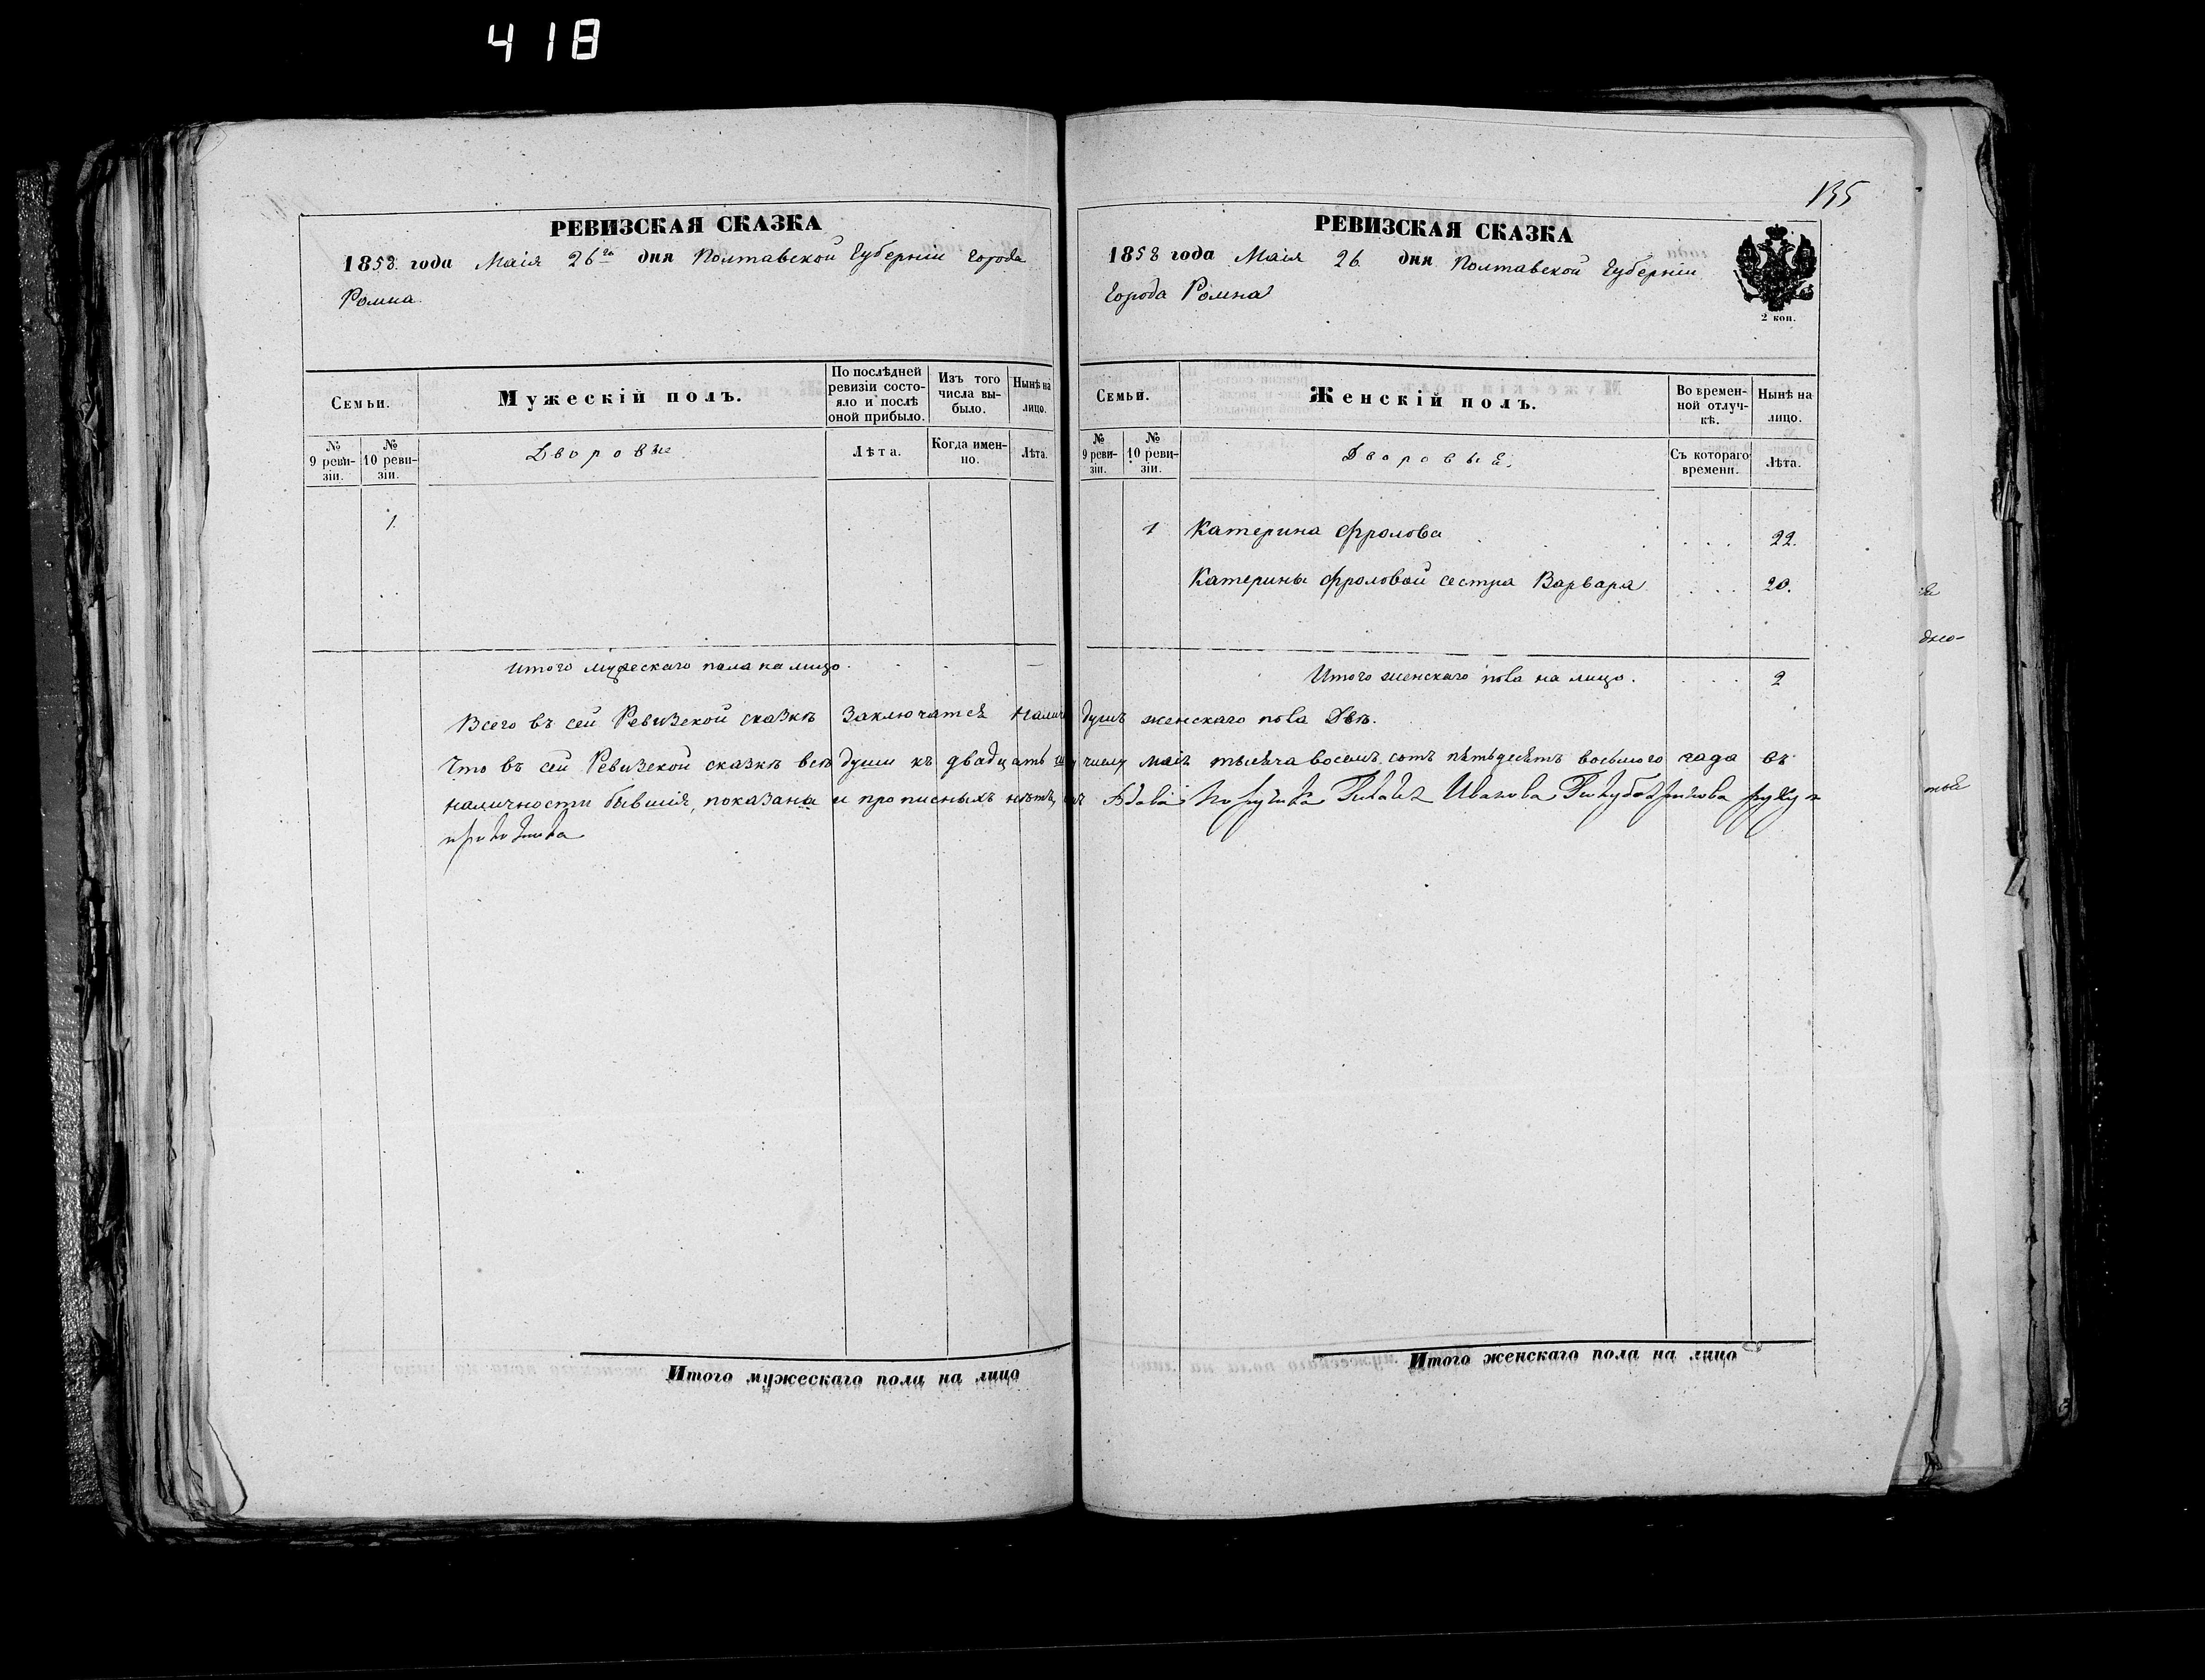 418
135
РЕВИЗСКАЯ СКАЗКА
1858 года Маія 26го дня Полтавской Губерніи Города
Ромна
Семьи.
Мужескій полъ.
По послѣдней ревизіи состояло и послѣ оной прибыло.
Изъ того числа выбыло.
Нынѣ на лицо.
№ 9 ревизіи.
№ 10 ревизіи.
Дворовые
Лѣта.
Когда именно.
Лѣта.
1.
Итого мужескаго пола на лицо
РЕВИЗСКАЯ СКАЗКА
1858 года Маія 26 дня Полтавской Губерніи
Города Ромна
2 коп.
Семьи.
Женскій полъ.
Во временной отлучкѣ.
Нынѣ на лицо.
№ 9 ревизіи.
№ 10 ревизіи.
Дворовые.
Съ котораго времени.
Лѣта.
1 Катерина Фролова 22.
Катерины Фроловой сестра Варвара 20.
Итого женскаго пола на лицо. 2
Всего въ сей Ревизской сказкѣ заключатся душъ женскаго пола Двѣ.
Что въ сей Ревизской сказкѣ всѣ души къ двадцать числу маія тысяча восемь сотъ пятьдесятъ восьмого года въ
наличности бывшія, показана и прописныхъ нѣтъ, Ивановна
Итого мужескаго пола на лицо
Итого женскаго пола на лицо